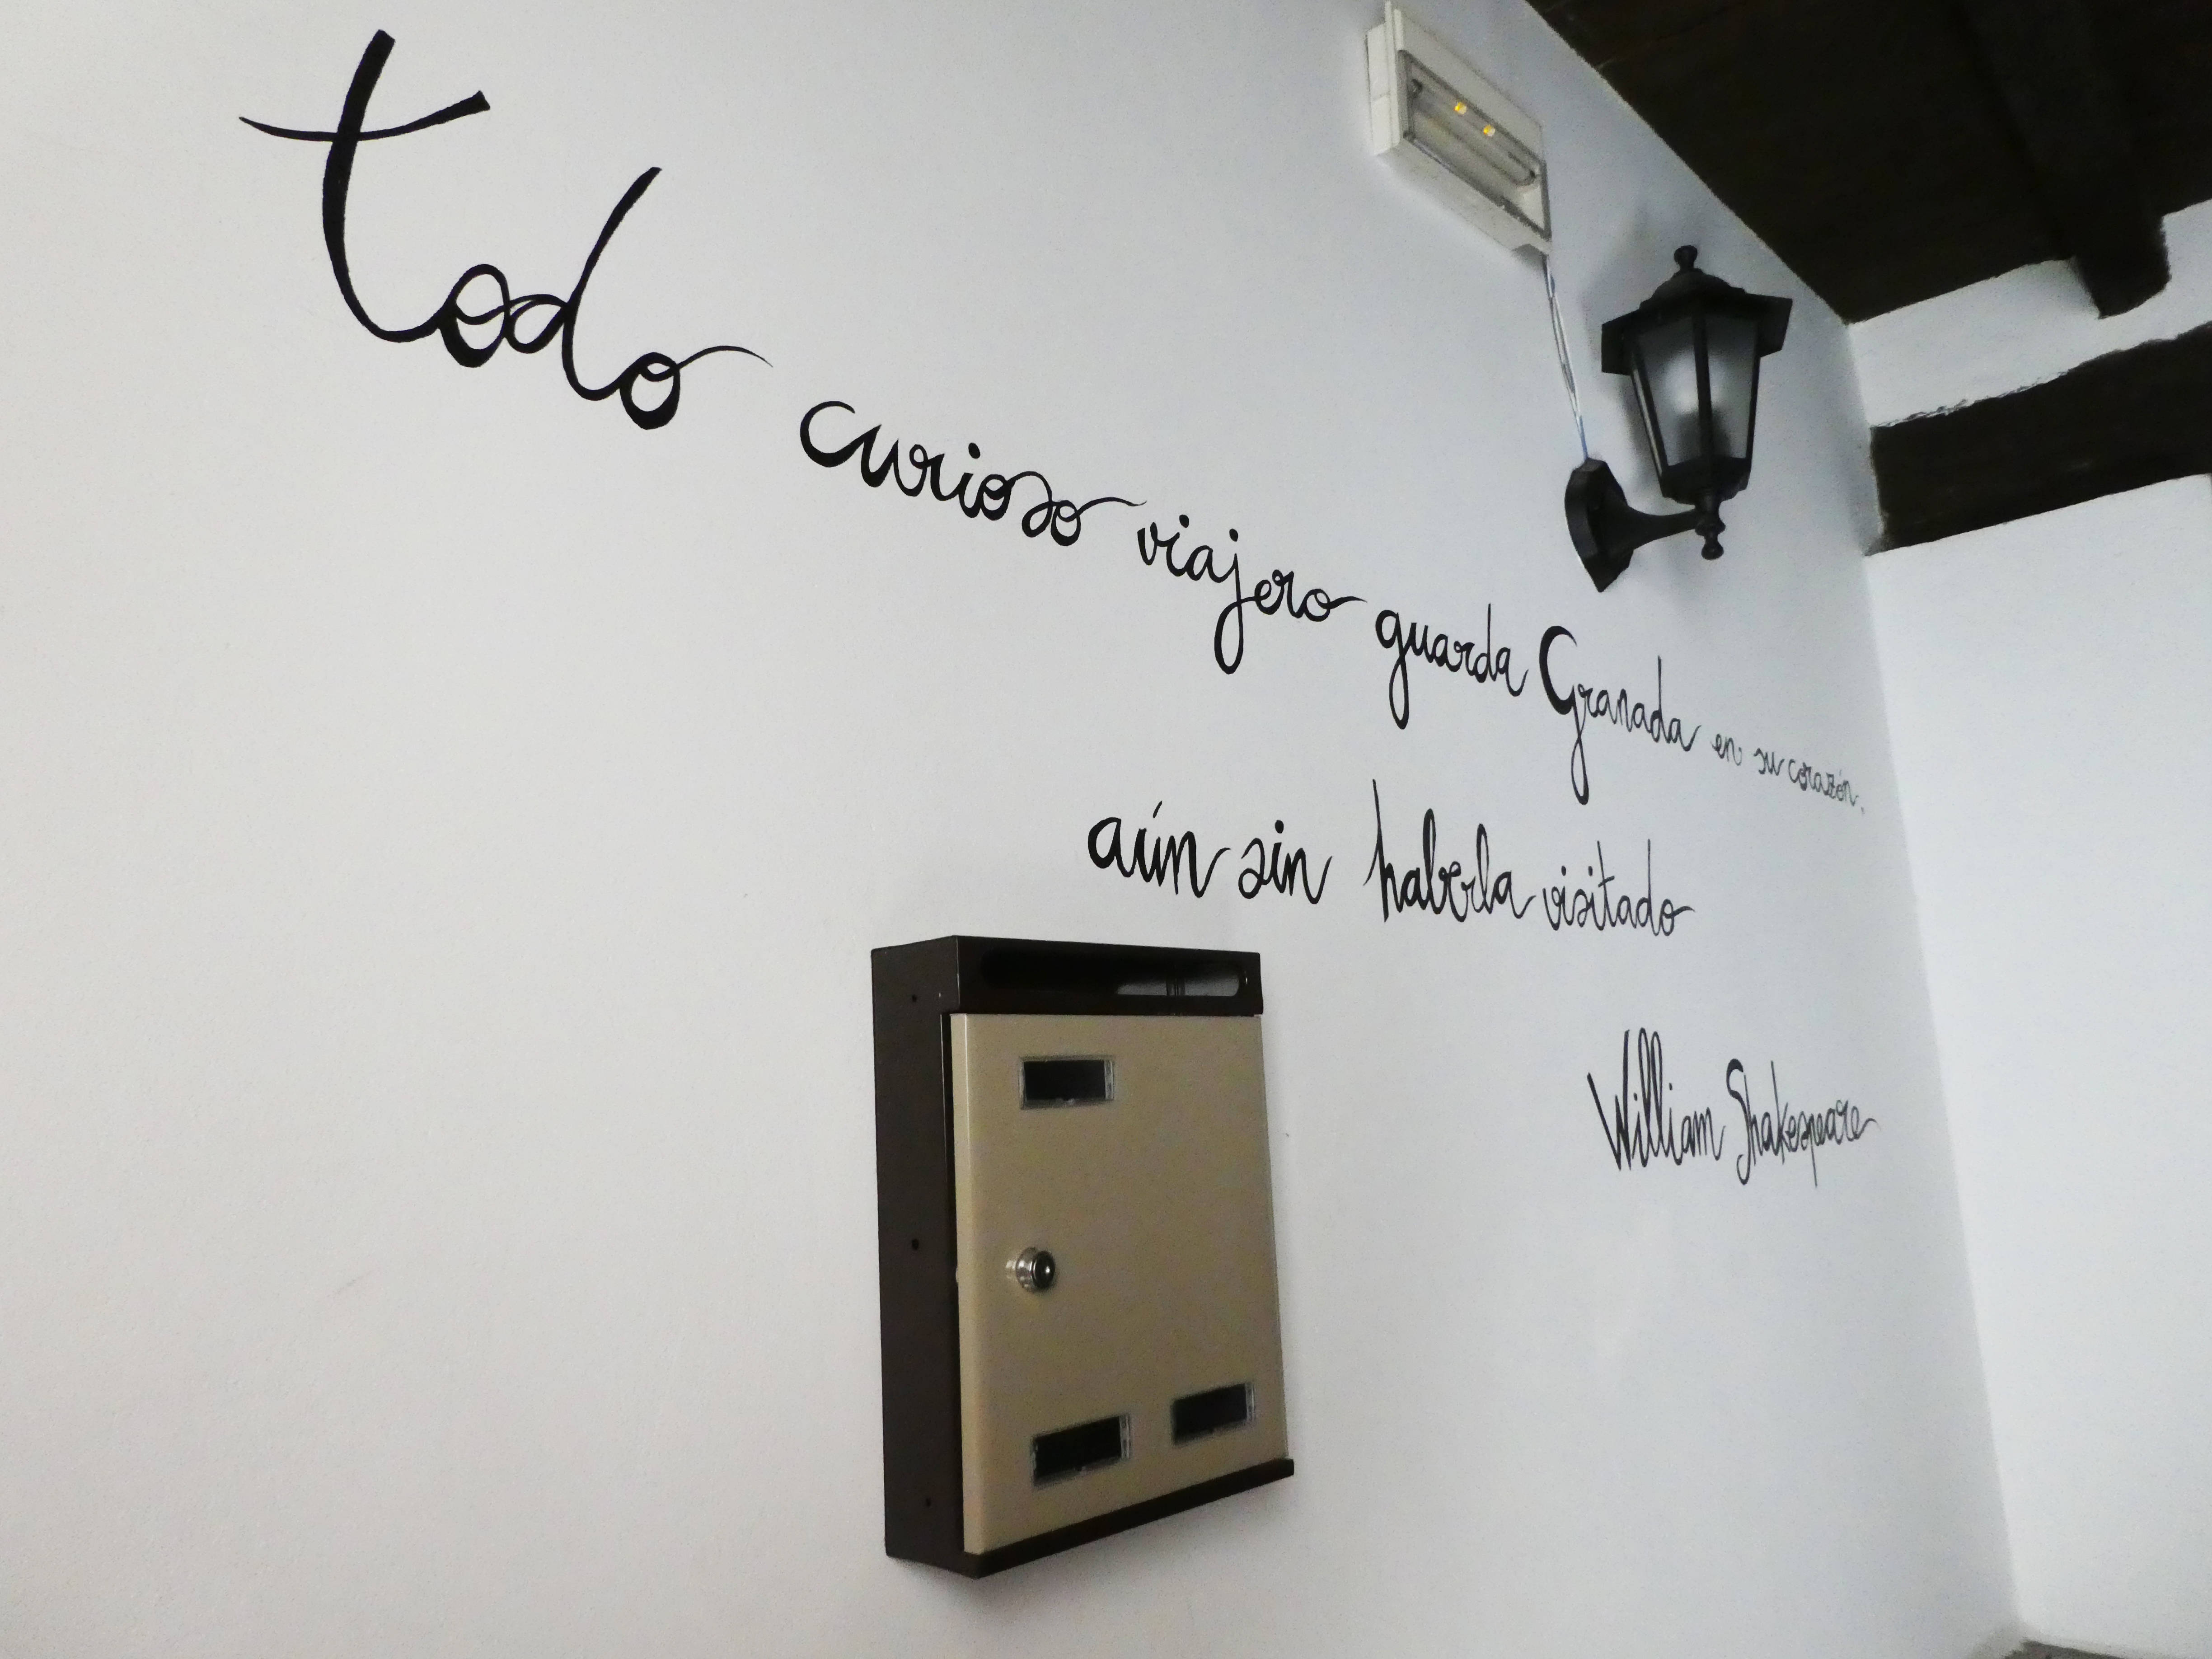 todo curioso viajero guarda Granada en su corazón,
aún sin haberla visitado
William Shakespeare